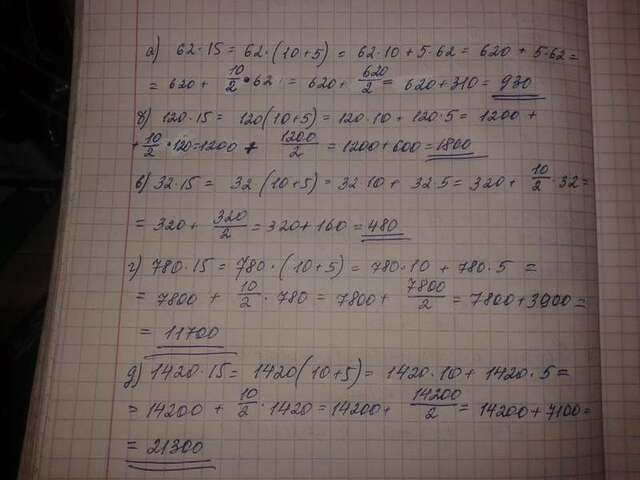 а) 62·15 = 62·(10+5) = 62·10 + 5·62 = 620 + 5·62 =
= 620 + 10/2 · 62 = 620 + 620/2 = 620 + 310 = 930
б) 120·15 = 120(10+5) = 120·10 + 120·5 = 1200 +
+ 10/2 · 120 = 1200 + 1200/2 = 1200 + 600 = 1800
в) 32·15 = 32(10+5) = 32·10 + 32·5 = 320 + 10/2 · 32 =
= 320 + 320/2 = 320 + 160 = 480
г) 780·15 = 780·(10+5) = 780·10 + 780·5 =
= 7800 + 10/2 · 780 = 7800 + 7800/2 = 7800 + 3900 =
= 11700
д) 1420·15 = 1420(10+5) = 1420·10 + 1420·5 =
= 14200 + 10/2 · 1420 = 14200 + 14200/2 = 14200 + 7100 =
= 21300